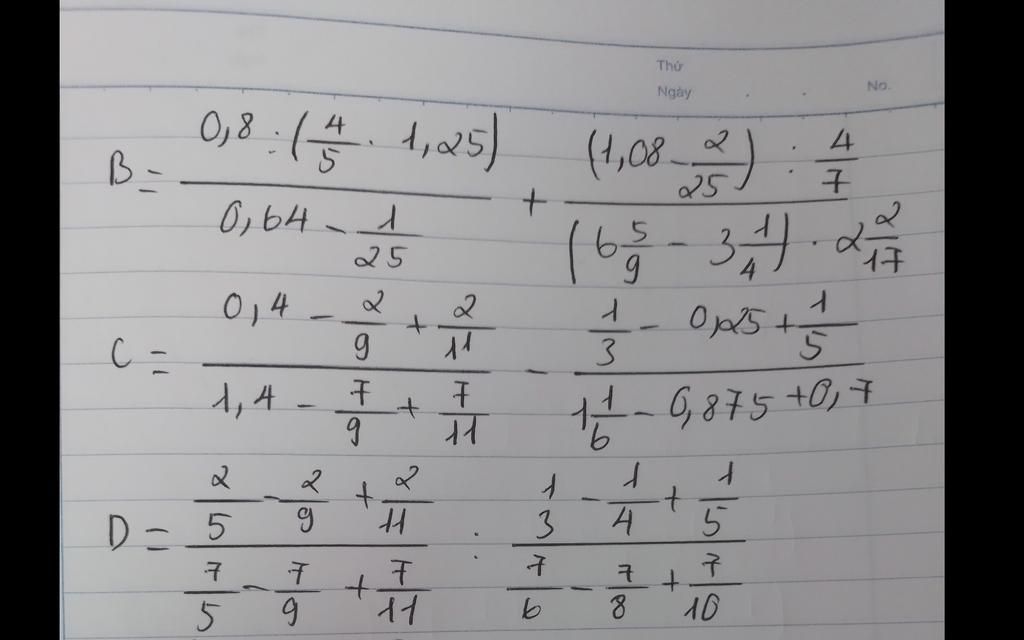 Thứ
Ngày . . No.
B = \frac{0,8 : (\frac{4}{5} \cdot 1,25)}{0,64 - \frac{1}{25}} + \frac{(1,08 - \frac{2}{25}) : \frac{4}{7}}{(6\frac{5}{9} - 3\frac{1}{4}) \cdot 2\frac{2}{17}}
C = \frac{0,4 - \frac{2}{9} + \frac{2}{11}}{1,4 - \frac{7}{9} + \frac{7}{11}} - \frac{\frac{1}{3} - 0,25 + \frac{1}{5}}{1\frac{1}{6} - 0,875 + 0,7}
D = \frac{\frac{2}{5} - \frac{2}{9} + \frac{2}{11}}{\frac{7}{5} - \frac{7}{9} + \frac{7}{11}} : \frac{\frac{1}{3} - \frac{1}{4} + \frac{1}{5}}{\frac{7}{6} - \frac{7}{8} + \frac{7}{10}}